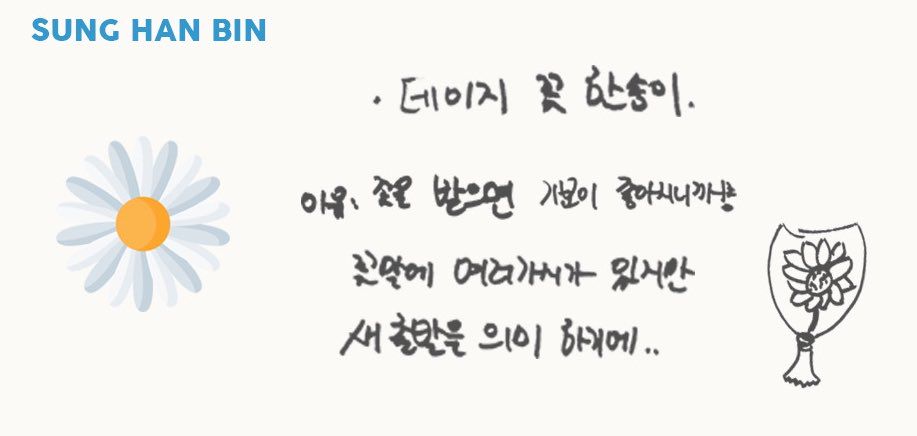 SUNG HAN BIN
· 데이지 꽃 한송이.
이유: 꽃을 받으면 기분이 좋아지니까!!
꽃말에 여러가지가 있지만
새출발을 의미 하기에..